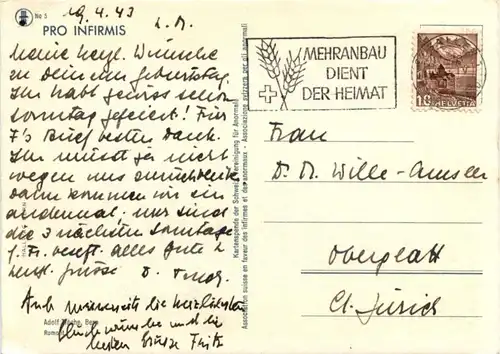 No 5
19.4.43
PRO INFIRMIS
L. R.
Meine herzl. Wünsche
zu deinem Geburtstag.
Ihr habt gewiss schon
Sonntag gefeiert! Für
F's Buch besten Dank.
Ihr müsst ja nicht
wegen uns
dann kommen wir ein
andermal, nur sind
die 3 nächsten Sonntage
f. Fr. besetzt. Alles Gute &
herzl. Grüsse
Auch meinerseits die herzlichsten
Glückwünsche und die
besten Grüsse Fritz
Adolf
Kartenspende der Schweiz. Vereinigung für Anormale
Association suisse en faveur des infirmes et des anormaux - Associazione svizzera per gli anormali
MEHRANBAU
DIENT
DER HEIMAT
10 HELVETIA
Frau
Dr. Wille-Amsler
Oberglatt
Ct. Zürich